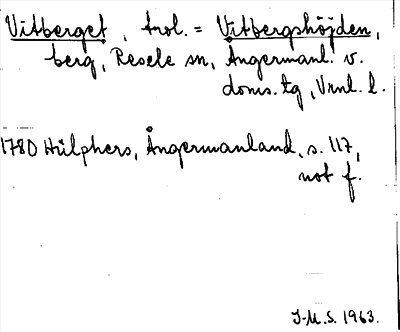 Vitberget, trol. = Vitbergshöjden,
berg, Resele sn, Ångermanl. v.
doms. tg, Vrnl. l.
1780 Hülphers, Ångermanland, s. 117,
not f.
J-M.S. 1963.